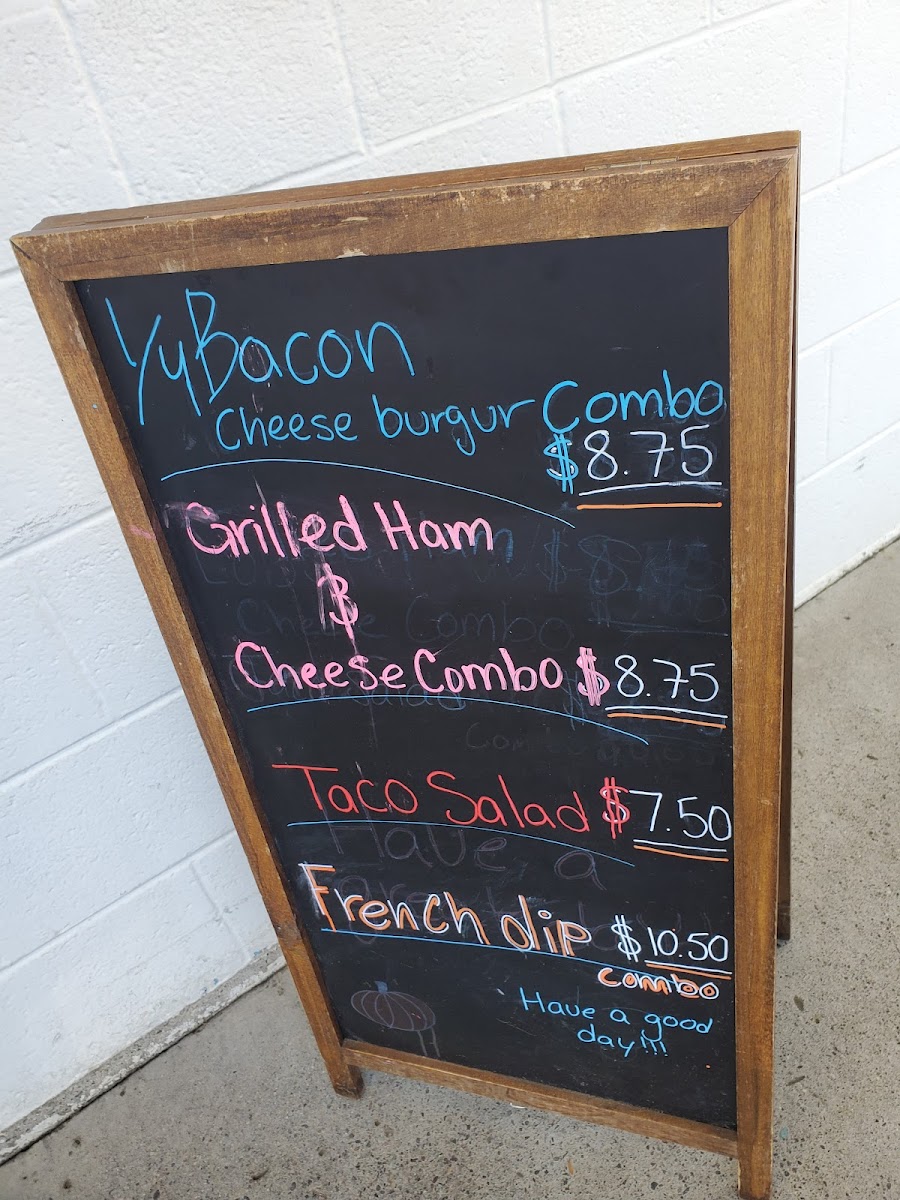 1/4 Bacon
Cheese burgur Combo
$8.75
Grilled Ham
&
Cheese Combo $8.75
Taco Salad $7.50
French dip $10.50
combo
Have a good
day!!!